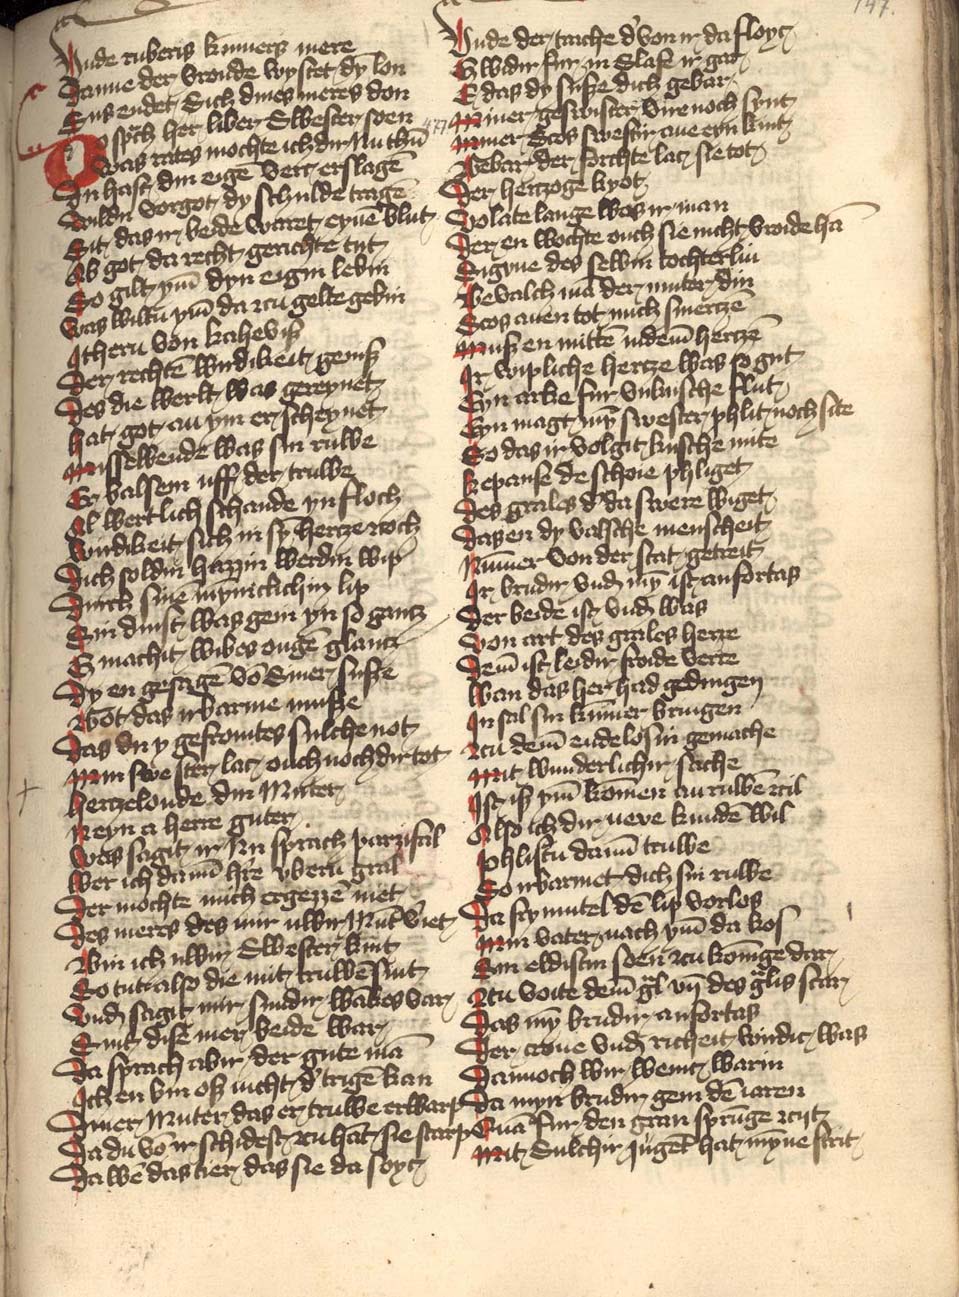 147.
Vnde ruberis kumers mere
Danne der vroude wystet dy lon
Sus endet sich dines meres don
Do spͤch her liber swester soen
Was rates mochte ich dir nu thuͦ
Du hast din eigē verc erslagē
Wildu vorgot dy schulde tragē
Sit das ir beide waret eyne blut
Ab got da recht gerichte tut
So gilt ym̄ dyn eigin lebin
Was wiltu ym̄ da zcu gelte gebin
Ithern von kaheviß
Der rechtē wirdikeit geniß
Des die werlt was gereynet
hat got an ym er scheynet
Missewende was sin ruwe
Er balsem uff der truwe
Al wertlich schande yn floch
Wirdikeit sich in sȳ hertze zoch
Dich soldin hazzin werdin wip
Durch sine mynnichlichin lip
Sin dinst was gein yn so gantz
Ez machit wibes ougē glantz
Dy en gesagē vō siner susse
Got das irbarme musse
Das du y gefromtes sulche not
Min swester lac ouch noch dir tot
hertzeloude din Muter
Neyn a herre guter
Was sagit ir Nu sprach parzifal
Wer ich dann̄ h're ubern gral
Der mochte mich ergezzē niet
Des meres des mir uwir Mūt v'iet
Bin ich uwir swester kint
So tut also die mit truwē sint
Vnd sagit mir sundir wākes var
Sint dise mer beide war
Da sprach abir der gute mā
Ich en bin oß nicht d' trigē kan
Diner Muter das er truwe erwarp
Da du vō ir schidest zcu hāt sie starp
Da wē das tier das sie da soyc
Vnde der trache d' von ir da floyc
Ez widir fur in slafe ir gar
E das dy susse dich gebar
Miner geswister zwe noch synt
477
Miner scos swestir ane eyn kint
Gebar der forchte lac sie tot
Der hertzoge kyot
Vō katelange was ir man
Der en wochte ouch sie nicht vroide hā
Sigune des selbin tochterlin
Bevalch mā der muter din
Scos anen tot mich smertzē
Muß en mittē indem̄ hertzē
Ir wipliche hertze was so gut
Eyn arke fur vnkusche flut
Eyn magt mȳ swester phlit noch site
So das ir volgit kusche mite
Repanse de schoie phliget
Des grales d' da swere wiget
Das en dy valsche menscheit
Nūmer von der stat getreit
Ir brudir vnd mȳ ist anfortas
Der beide ist vnd was
Von art des grales herre
Dem̄ ist leidir froide verre
Wan das her had gedingen
In sal sin kūmer bringen
Zcu dem̄ endelosin gemache
Mit wunderlichir sache
Ist iß ym̄ komen an ruwē zcil
Also ich dir neve kundē wil
Phlistu dann̄ truwe
So irbarmet dich sin ruwe
Da frymutel dē lip vorlos
Min vater nach ym̄ da kos
Sin eldistin soen zcu konige dar
Zcu voite dem̄ g͛l vn̄ des g͛lis scar
Das mȳ brudir anfortas
Der crone vnd richeit wirdic was
Dannoch wir wenic warin
Da myn brudir gein dē iaren
Quā fur den gran sprunge zcijt
Mit sulchir juget hat mȳne strit